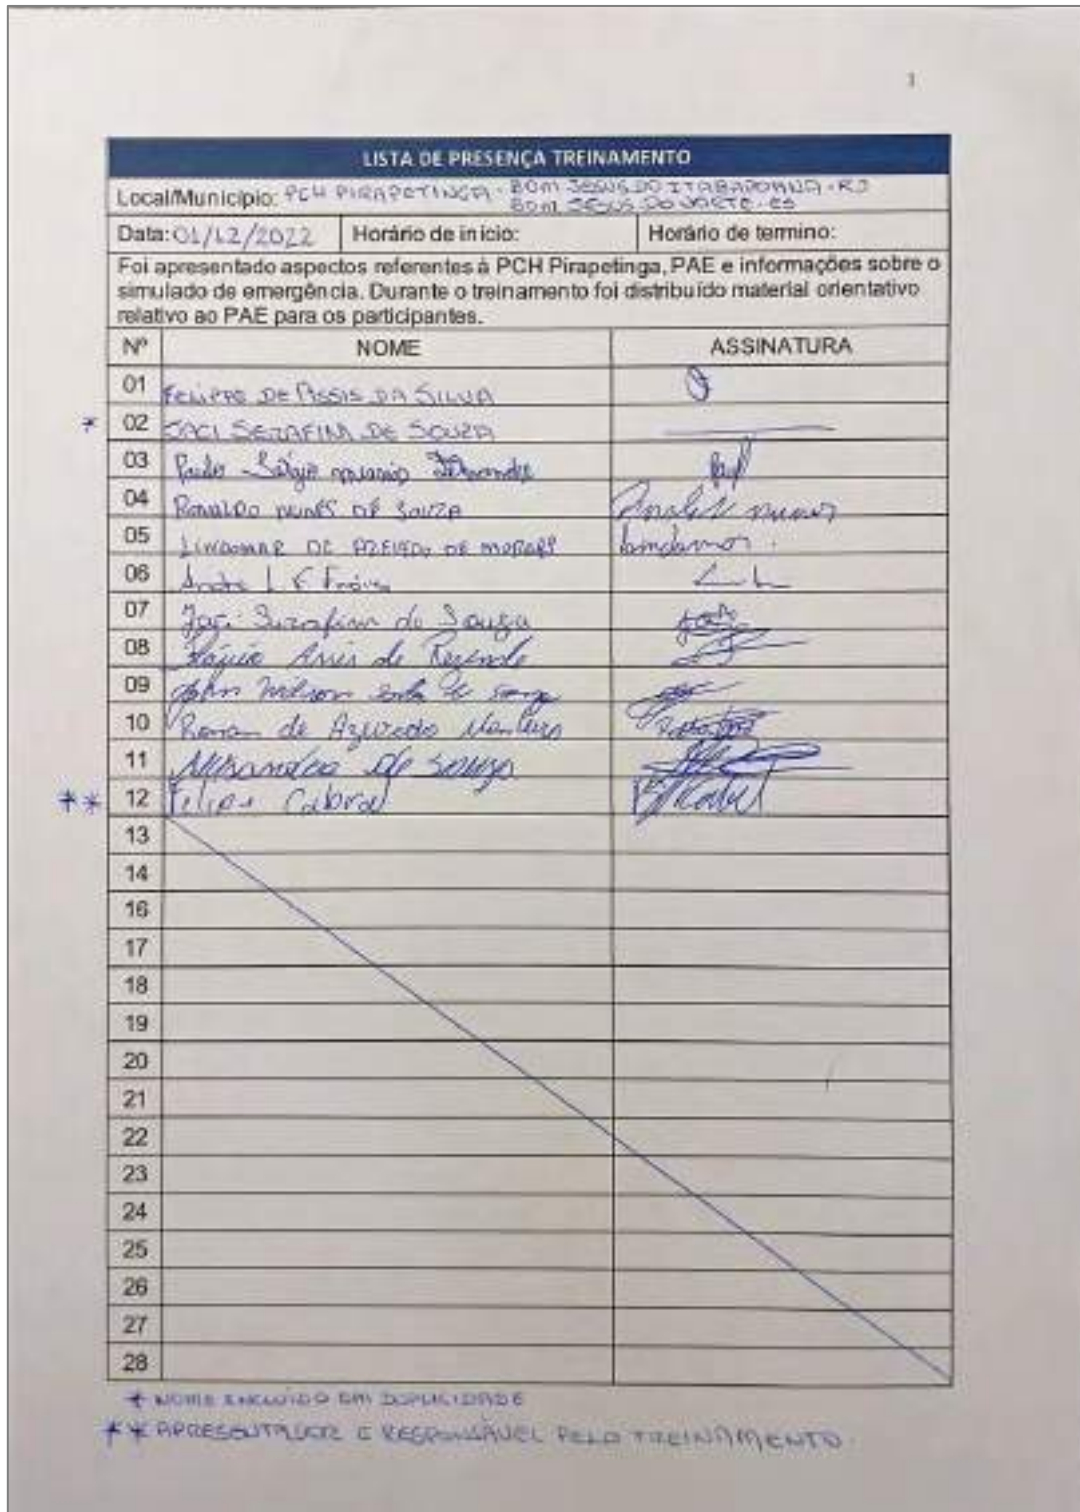 1
LISTA DE PRESENÇA TREINAMENTO
Local/Município: PCH PIRAPETINGA - BOM JESUS DO ITABAPOANA - RJ
BOM JESUS DO NORTE - ES
Data: 01/12/2022 Horário de início: Horário de termino:
Foi apresentado aspectos referentes à PCH Pirapetinga, PAE e informações sobre o
simulado de emergência. Durante o treinamento foi distribuído material orientativo
relativo ao PAE para os participantes.
Nº NOME ASSINATURA
01 FELIPPE DE ASSIS DA SILVA
* 02 JACI SERAFIM DE SOUZA
03 Paulo Sérgio
04 RONALDO NUNES DE SOUZA Ronaldo nunes
05 LINDOMAR DE AZEVEDO DE MORAES
06 André L F
07 Jaci Serafim de Souza
08 Assis de Rezende
09 John
10 Renan de Azeredo
11 de Souza
** 12 Felipe Cabral
13
14
16
17
18
19
20
21
22
23
24
25
26
27
28
* NOME INCLUÍDO EM DUPLICIDADE
** APRESENTADOR E RESPONSÁVEL PELO TREINAMENTO.